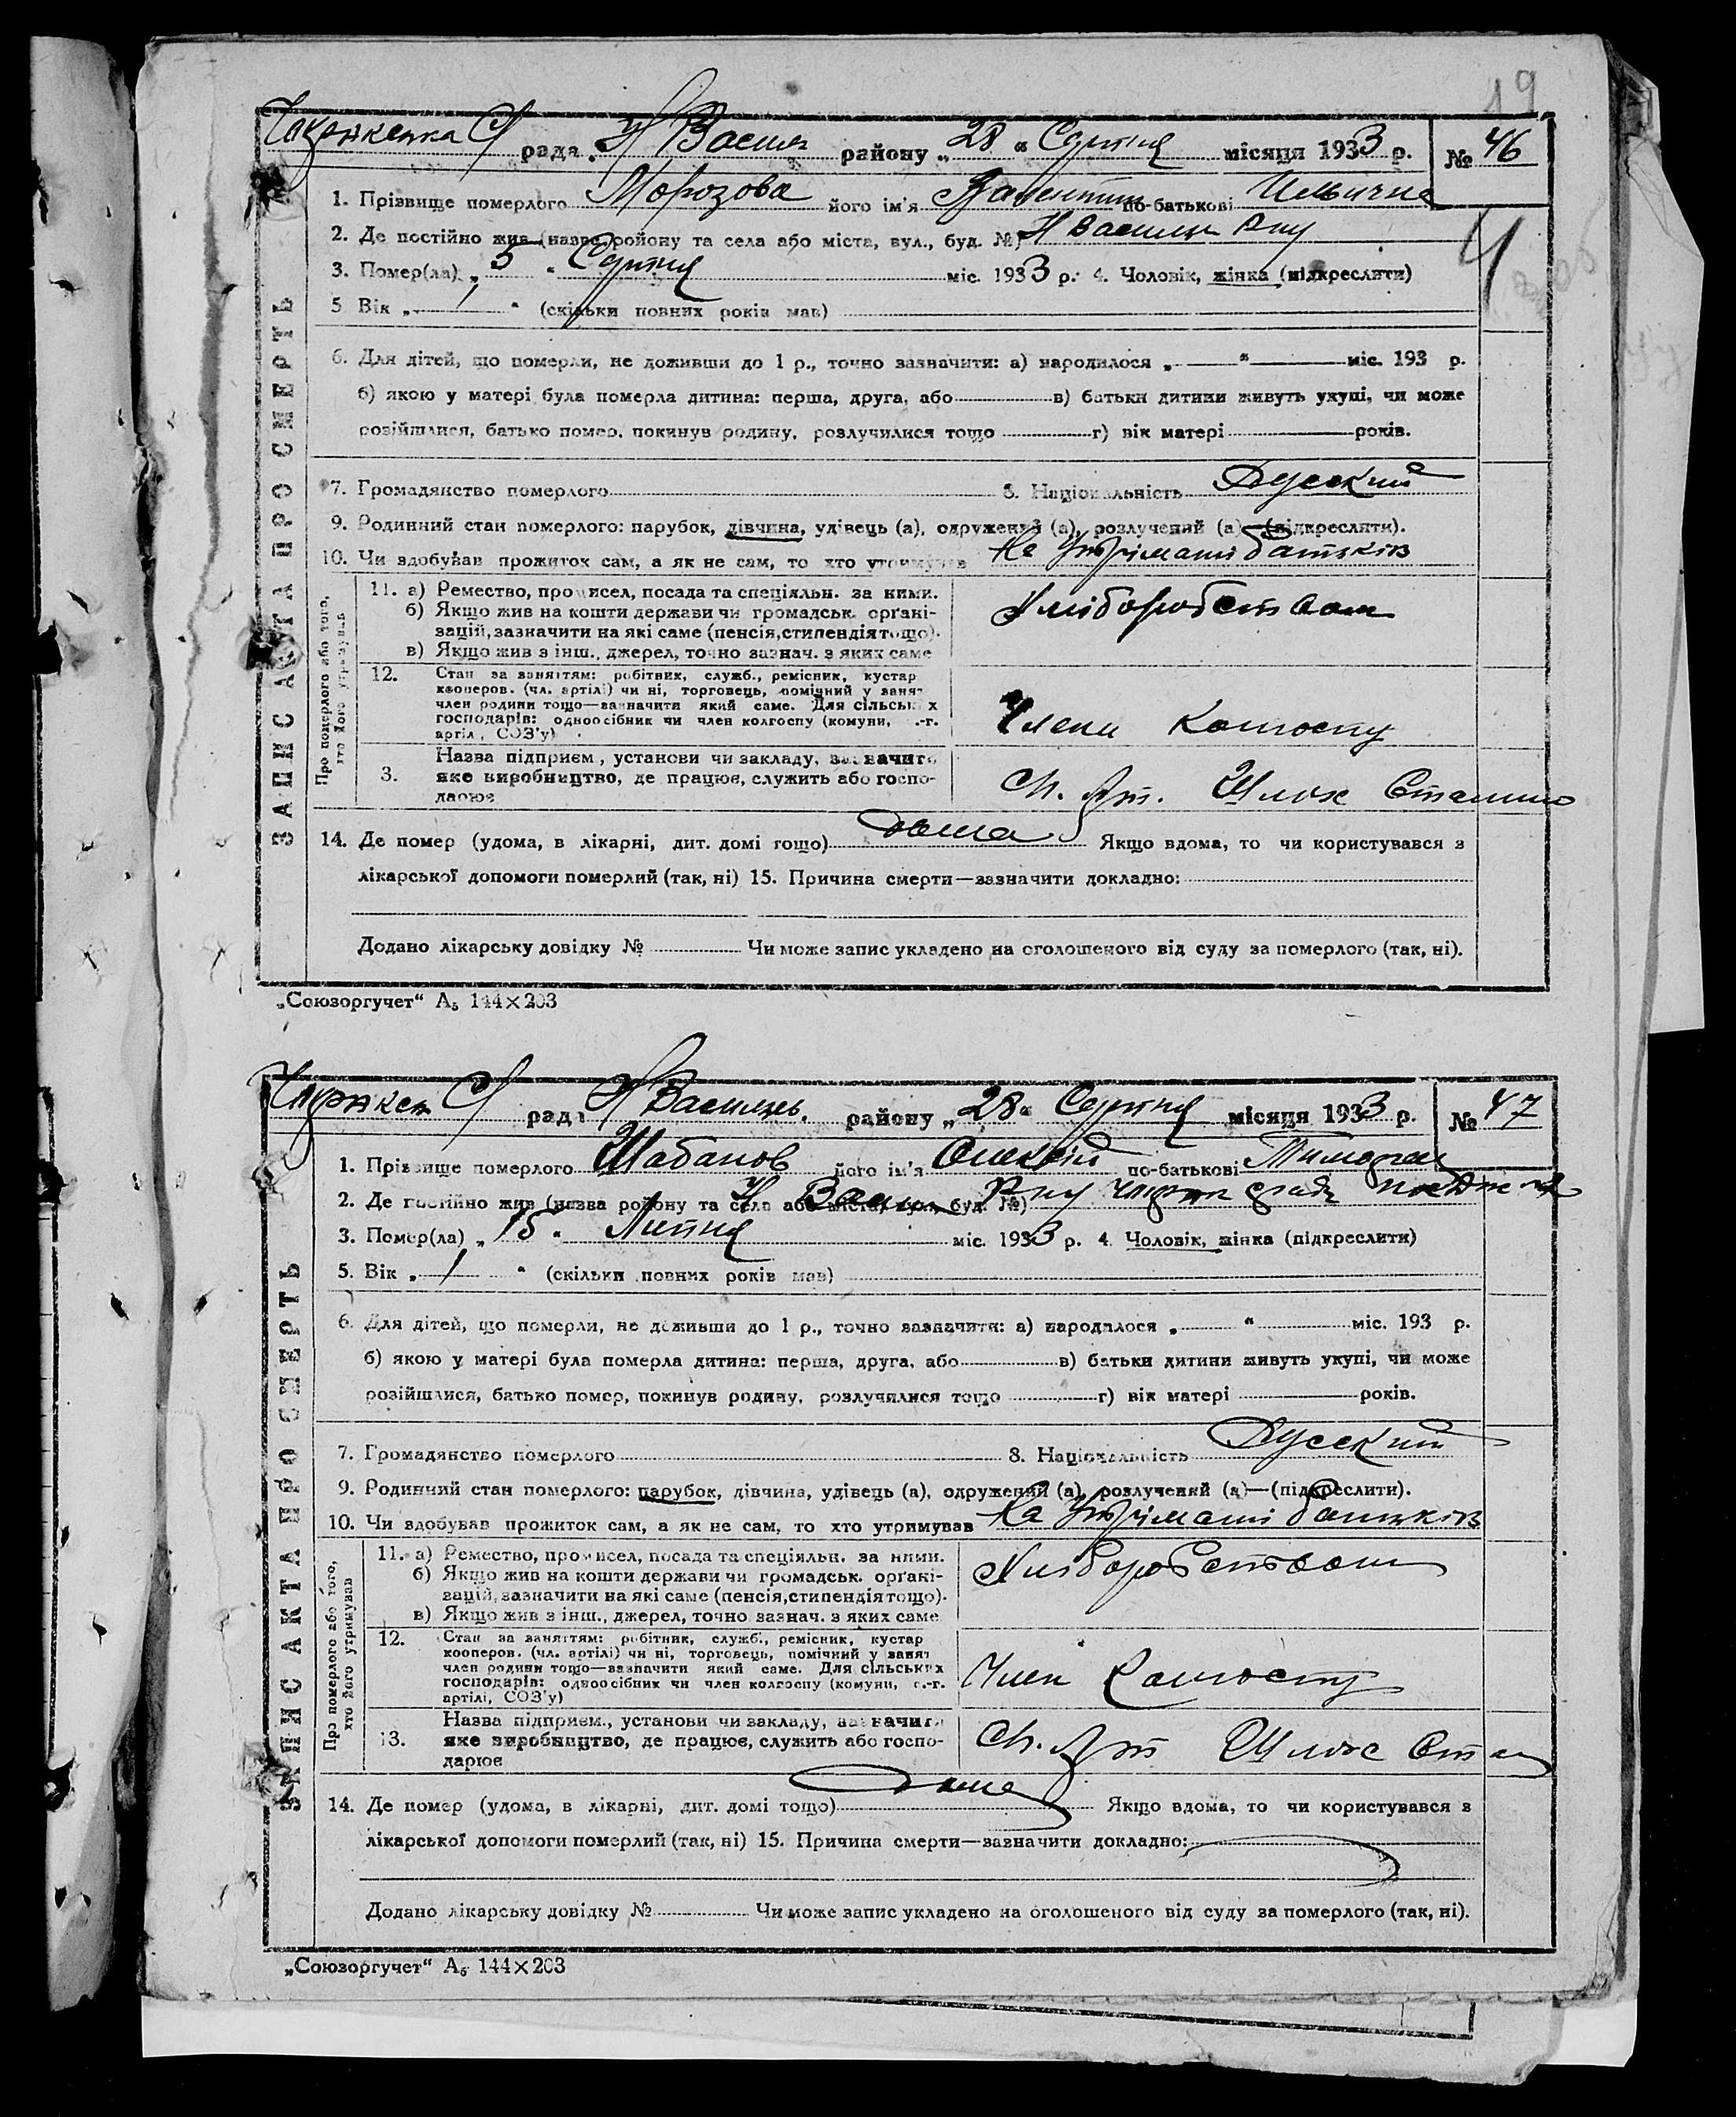 19
рада Н Васил району „28“ Серпня місяця 1933 р. № 46
ЗАПИС АКТА ПРО СМЕРТЬ
1. Прізвище померлого Морозова його ім'я Валентин по-батькові Ильична
2. Де постійно жив (назва району та села або міста, вул., буд. №) Н Василц Рну
3. Помер(ла) „5“ Серпня міс. 1933 р. 4. Чоловік, жінка (підкреслити)
5 Вік „1“ (скільки повних років мав)
6. Для дітей, що померли, не доживши до 1 р., точно зазначити: а) народилося „ “ міс. 193 р.
б) якою у матері була померла дитина: перша, друга, або в) батьки дитини живуть укупі, чи може
розійшлися, батько помер, покинув родину, розлучилися тощо г) вік матері років.
7. Громадянство померлого 8. Національність Русский
9. Родинний стан померлого: парубок, дівчина, удівець (а), одружений (а), розлучений (а)—(підкреслити).
10. Чи здобував прожиток сам, а як не сам, то хто утримував На Утріманні батьків
Про померлого або того, хто його утримував
11. а) Ремество, промисел, посада та спеціяльн. за ними.
б) Якщо жив на кошти держави чи громадськ. організацій, зазначити на які саме (пенсія, стипендія тощо).
в) Якщо жив з інш., джерел, точно зазнач. з яких саме
Хліборобством
12. Стан за заняттям: робітник, служб., ремісник, кустар
кооперов. (чл. артілі) чи ні, торговець, помічний у занят
член родини тощо—зазначити який саме. Для сільських
господарів: одноосібник чи член колгоспу (комуни, с.-г.
артіл, СОЗ'у)
Члени Колгоспу
3. Назва підприєм, установи чи закладу, зазначити
яке виробництво, де працює, служить або господарює
Сг. Арт. Шлях Сталино
14. Де помер (удома, в лікарні, дит. домі тощо) дома Якщо вдома, то чи користувався з
лікарської допомоги померлий (так, ні) 15. Причина смерти—зазначити докладно:
Додано лікарську довідку № Чи може запис укладено на оголошеного від суду за померлого (так, ні).
„Союзоргучет“ А₅ 144×203
рада Н Василцев. району „28“ Серпня місяця 1933 р. № 47
ЗАПИС АКТА ПРО СМЕРТЬ
1. Прізвище померлого Шабанов його ім'я Олексій по-батькові
2. Де постійно жив (назва району та села або міста, вул., буд. №) Н Васил Рну
3. Помер(ла) „15“ Липня міс. 1933 р. 4 Чоловік, жінка (підкреслити)
5. Вік „1“ (скільки повних років мав)
6. Для дітей, що померли, не доживши до 1 р., точно зазначити: а) народилося „ “ міс. 193 р.
б) якою у матері була померла дитина: перша, друга, або в) батьки дитини живуть укупі, чи може
розійшлися, батько помер, покинув родину, розлучилися тощо г) вік матері років.
7. Громадянство померлого 8. Національність Русский
9. Родинний стан померлого: парубок, дівчина, удівець (а), одружений (а), розлучений (а)—(підкреслити).
10. Чи здобував прожиток сам, а як не сам, то хто утримував На Утріманні батьків
Про померлого або того, хто його утримував
11. а) Ремество, промисел, посада та спеціяльн. за ними.
б) Якщо жив на кошти держави чи громадськ. організацій, зазначити на які саме (пенсія, стипендія тощо).
в) Якщо жив з інш., джерел, точно зазнач. з яких саме
Хліборобством
12. Стан за заняттям: робітник, служб., ремісник, кустар
кооперов. (чл. артілі) чи ні, торговець, помічний у занят
член родини тощо—зазначити який саме. Для сільських
господарів: одноосібник чи член колгоспу (комуни, с.-г.
артілі, СОЗ'у)
Член Колгоспу
13. Назва підприєм., установи чи закладу, зазначити
яке виробництво, де працює, служить або господарює
Сг. Арт Шлях Стал
14. Де помер (удома, в лікарні, дит. домі тощо) дома Якщо вдома, то чи користувався з
лікарської допомоги померлий (так, ні) 15. Причина смерти—зазначити докладно:
Додано лікарську довідку № Чи може запис укладено на оголошеного від суду за померлого (так, ні).
„Союзоргучет“ А₅ 144×203